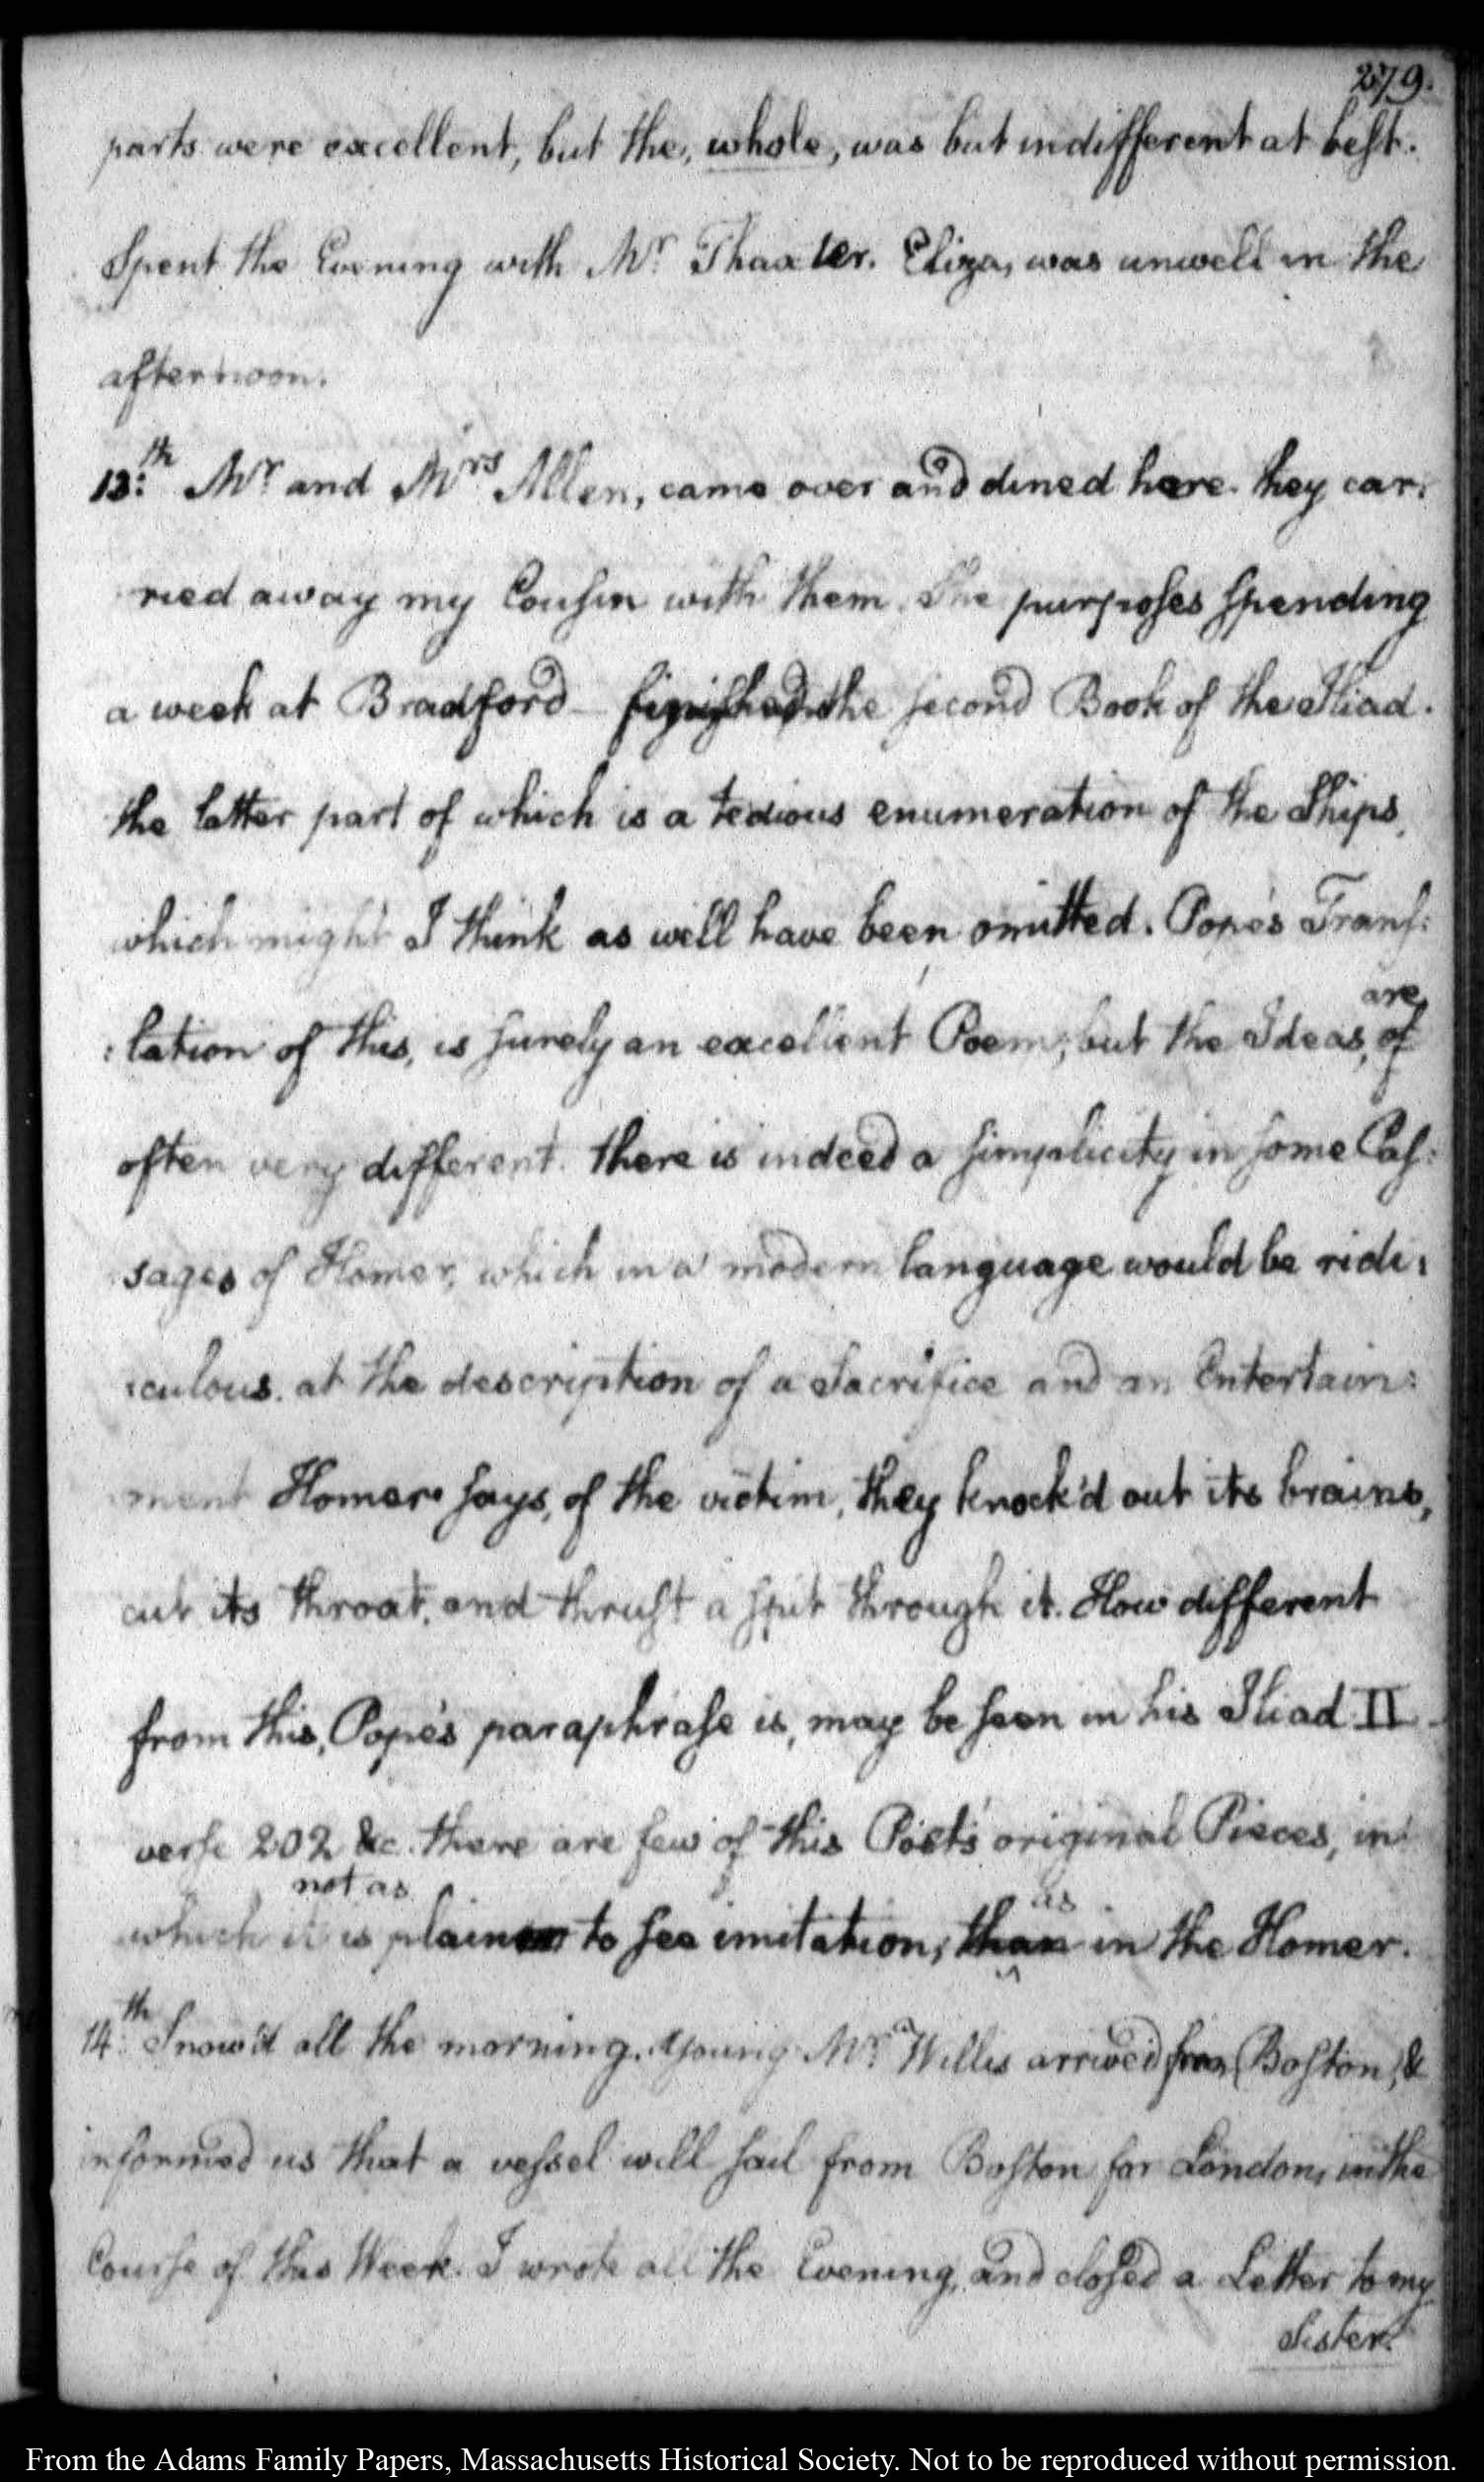 279.
parts were excellent, but the, whole, was but indifferent at best.
Spent the Evening with Mr Thaxter. Eliza, was unwell in the
afternoon.
13:th Mr and Mrs Allen, came over and dined here. they car:
ried away my Cousin with them. She purposes spending
a week at Bradford – finished the second Book of the Iliad.
the latter part of which is a tedious enumeration of the Ships,
which might I think as well have been omitted. Pope's Trans:
:lation of this, is surely an excellent Poem; but the Ideas, are of
often very different. there is indeed a simplicity in some Pas:
sages of Homer, which in a modern language would be ridi:
:culous. at the description of a Sacrifice and an Entertain:
ment Homer says, of the victim, they knock'd out its brains,
cut its throat, and thrust a spit through it. How different
from this, Pope's paraphrase is, may be seen in his Iliad II –
verse 202 &c. there are few of this Poet's original Pieces, in
which it is not as plainer to see imitation, than as in the Homer.
14:th Snow'd all the morning. Young Mr Willis arrived from Boston, &
informed us that a vessel will sail from Boston for London, in the
Course of this Week. I wrote all the Evening, and closed a Letter to my
Sister.
From the Adams Family Papers, Massachusetts Historical Society. Not to be reproduced without permission.